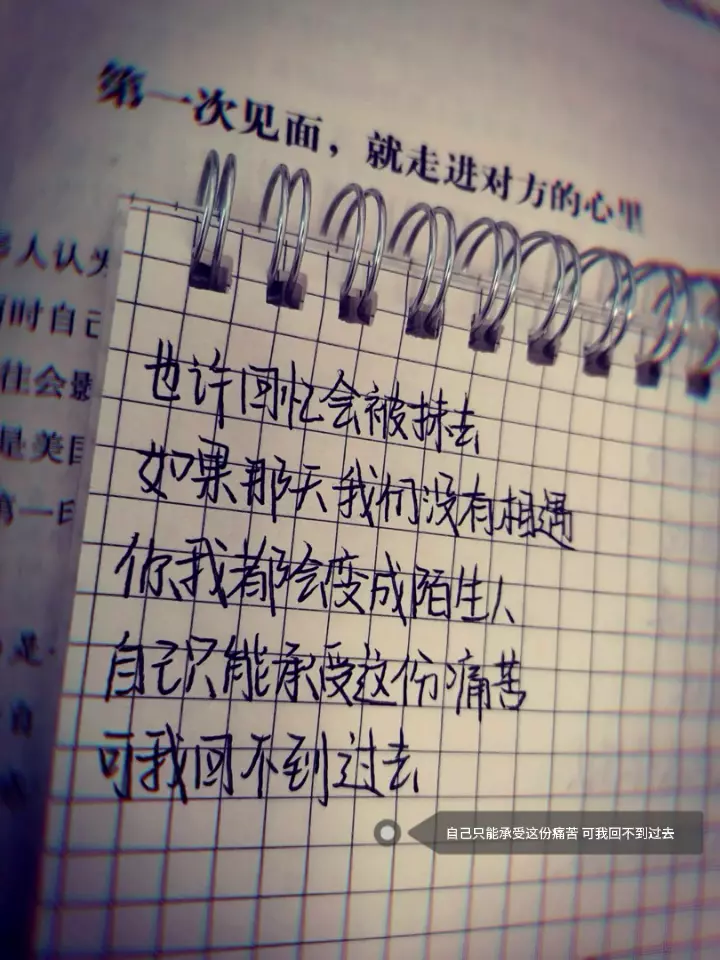 第一次见面，就走进对方的心里
人认为
时自己
往会
是美国
第一
是
自
也许回忆会被抹去
如果那天我们没有相遇
你我都会变成陌生人
自己只能承受这份痛苦
可我回不到过去
自己只能承受这份痛苦 可我回不到过去